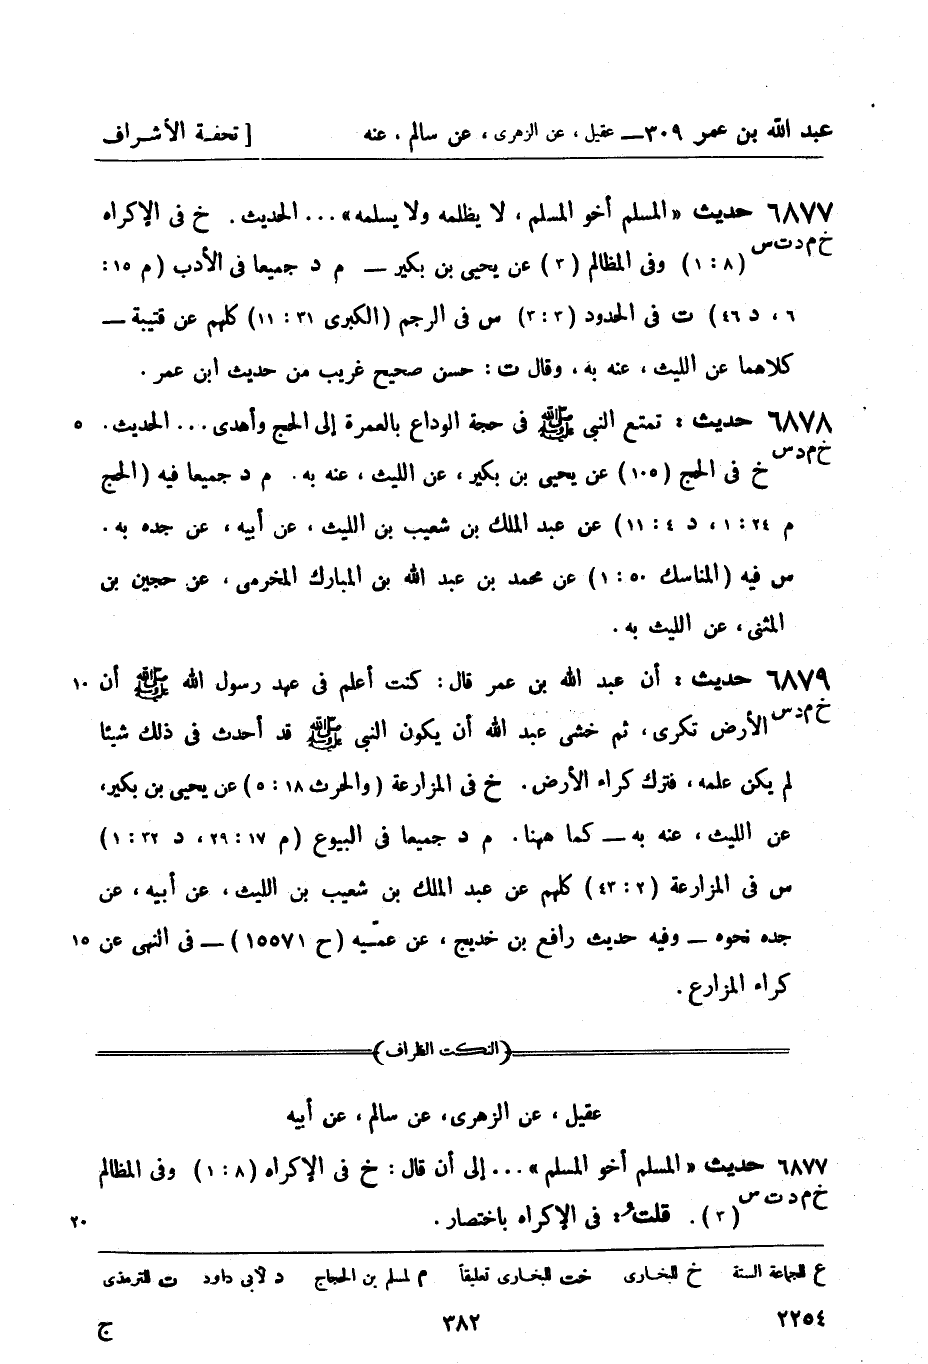 عبد الله بن عمر ٣٠٩ — عقيل ، عن الزهرى ، عن سالم ، عنه [ تحفة الأشراف
٦٨٧٧ حديث « المسلم أخو المسلم ، لا يظلمه ولا يسلمه » ... الحديث . خ فى الإكراه
خ م د ت س (٨ : ١) وفى المظالم (٣) عن يحيى بن بكير — م د جميعا فى الأدب (م ١٥ :
٦ ، د ٤٦) ت فى الحدود (٣ : ٣) س فى الرجم (الكبرى ٣١ : ١١) كلهم عن قتيبة —
كلاهما عن الليث ، عنه به ، وقال ت : حسن صحيح غريب من حديث ابن عمر .
٦٨٧٨ حديث : تمتع النبى ﷺ فى حجة الوداع بالعمرة إلى الحج وأهدى ... الحديث . ٥
خ م د س خ فى الحج (١٠٥) عن يحيى بن بكير ، عن الليث ، عنه به . م د جميعا فيه (الحج
م ٢٤ : ١ ، د ٤ : ١١) عن عبد الملك بن شعيب بن الليث ، عن أبيه ، عن جده به .
س فيه (المناسك ٥٠ : ١) عن محمد بن عبد الله بن المبارك المخرمى ، عن حجين بن
المثنى ، عن الليث به .
٦٨٧٩ حديث : أن عبد الله بن عمر قال : كنت أعلم فى عهد رسول الله ﷺ أن ١٠
خ م د س الأرض تكرى ، ثم خشى عبد الله أن يكون النبى ﷺ قد أحدث فى ذلك شيئا
لم يكن علمه ، فترك كراء الأرض . خ فى المزارعة (والحرث ١٨ : ٥) عن يحيى بن بكير ،
عن الليث ، عنه به — كما ههنا . م د جميعا فى البيوع (م ١٧ : ٢٩ ، د ٣٢ : ١)
س فى المزارعة (٢ : ٤٣) كلهم عن عبد الملك بن شعيب بن الليث ، عن أبيه ، عن
جده نحوه — وفيه حديث رافع بن خديج ، عن عمّيه (ح ١٥٥٧١) — فى النهى عن ١٥
كراء المزارع .
(النكت الظراف)
عقيل ، عن الزهرى ، عن سالم ، عن أبيه
٦٨٧٧ حديث « المسلم أخو المسلم » ... إلى أن قال : خ فى الإكراه (٨ : ١) وفى المظالم
خ م د ت س (٣) . قلتُ : فى الإكراه باختصار . ٢٠
ع للجماعة الستة خ للبخارى خت للبخارى تعليقاً م لمسلم بن الحجاج د لأبى داود ت للترمذى
٢٢٥٤ ٣٨٢ ج